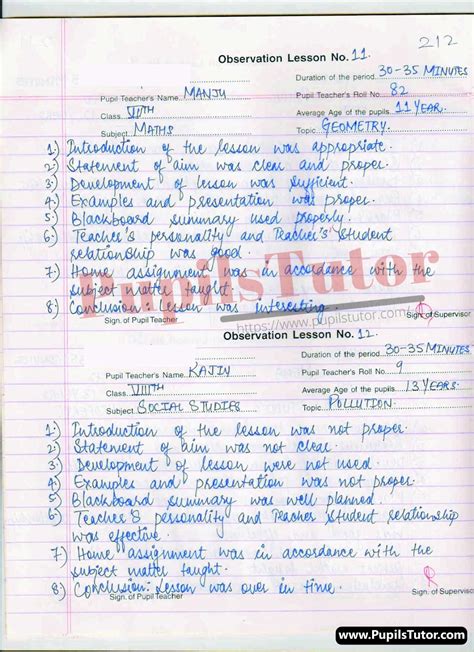 212
Observation Lesson No. 11
Duration of the period 30-35 MINUTES
Pupil Teacher's Name MANJU Pupil Teacher's Roll No. 82
Class VIITH Average Age of the pupils 11 YEAR.
Subject MATHS Topic GEOMETRY.
1) Introduction of the lesson was appropriate.
2) Statement of aim was clear and proper.
3) Development of lesson was sufficient.
4) Examples and presentation was proper.
5) Blackboard summary used properly.
6) Teacher's personality and Teacher's Student
relationship was good.
7) Home assignment was in accordance with the
subject matter taught.
PupilsTutor
8) Conclusion: lesson was interesting.
https://www.pupilstutor.com
Sign. of Pupil Teacher Sign. of Supervisor
Observation Lesson No. 12.
Duration of the period 30-35 MINUTES
Pupil Teacher's Name KAJIN Pupil Teacher's Roll No. 9
Class VIIITH Average Age of the pupils 13 YEARS.
Subject SOCIAL STUDIES Topic POLLUTION.
1.) Introduction of the lesson was not proper.
2) Statement of aim was not clear.
3) Development of lesson were not used.
4) Examples and presentation was not proper.
5) Blackboard summary was well planned.
6) Teacher's personality and Teacher Student relationship
was effective.
7) Home assignment was in accordance with the
subject matter taught.
8) Conclusion: Lesson was over in time.
Sign. of Pupil Teacher Sign. of Supervisor
www.PupilsTutor.com